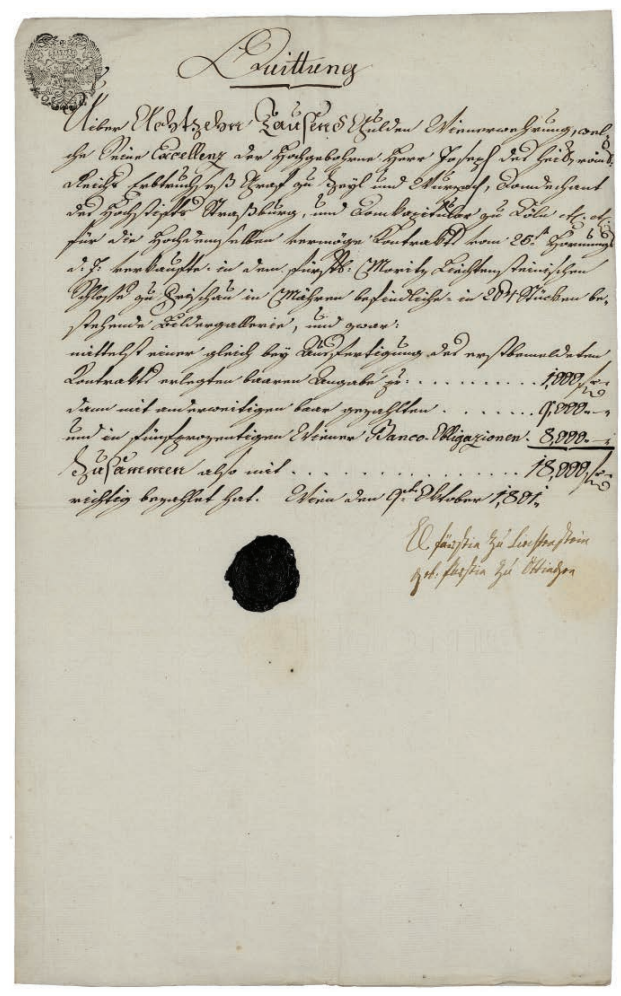 Quittung
Uiber Achtzehn Tausend Gulden Wienerwehrung, wel-
che Seine Excellenz der Hochgebohrne Herr Joseph des heil: röm:
Reichs Erbtruchseß Graf zu Zeyl und Wurzach, Domdechant
des Hochstifts Straßburg, und Domkapitular zu Köln etc: etc:
für die Hochdemselben vermöge Kontrakts vom 26t Hornung
d. J. verkaufte in dem fürstl: Moritz Liechtensteinischen
Schlosse zu in Mähren befindliche in 204 Stücken be-
stehende Bildergallerie, und zwar:
mittelst einer gleich bey Ausfertigung des erstbemeldeten
Kontrakts erlegten baaren Angabe pr: . . . . . . . . . . 1,000 f
dann mit anderweitigen baar gezahlten . . . . . . . 9,000 -
und in fünfprozentigen Wiener Banco-Obligazionen. 8,000 -
Zusammen also mit . . . . . . . . . . . . . . . 18,000 f
richtig bezahlet hat. Wien den 9ten Oktober 1,801.
E. fürstin zu Liechtenstein
geb. fürstin zu Ottingen